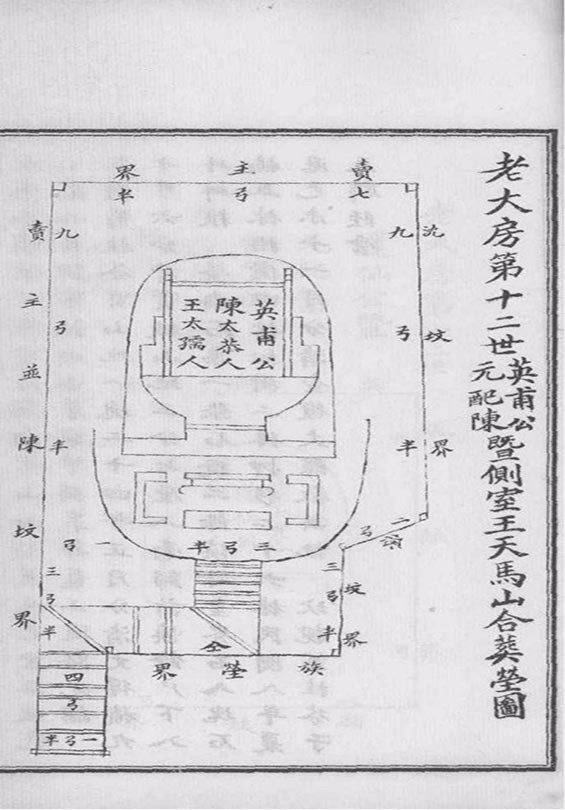 老大房第十二世英甫公元配陳暨側室王天馬山合葬塋圖
賣主界
七弓半
沈坟界
九弓半
二弓
三弓半
坟界
賣主並陳坟界
九弓半
英甫公
陳太恭人
王太孺人
三弓半
一弓
三弓半
族塋界
仝
四弓
一弓半